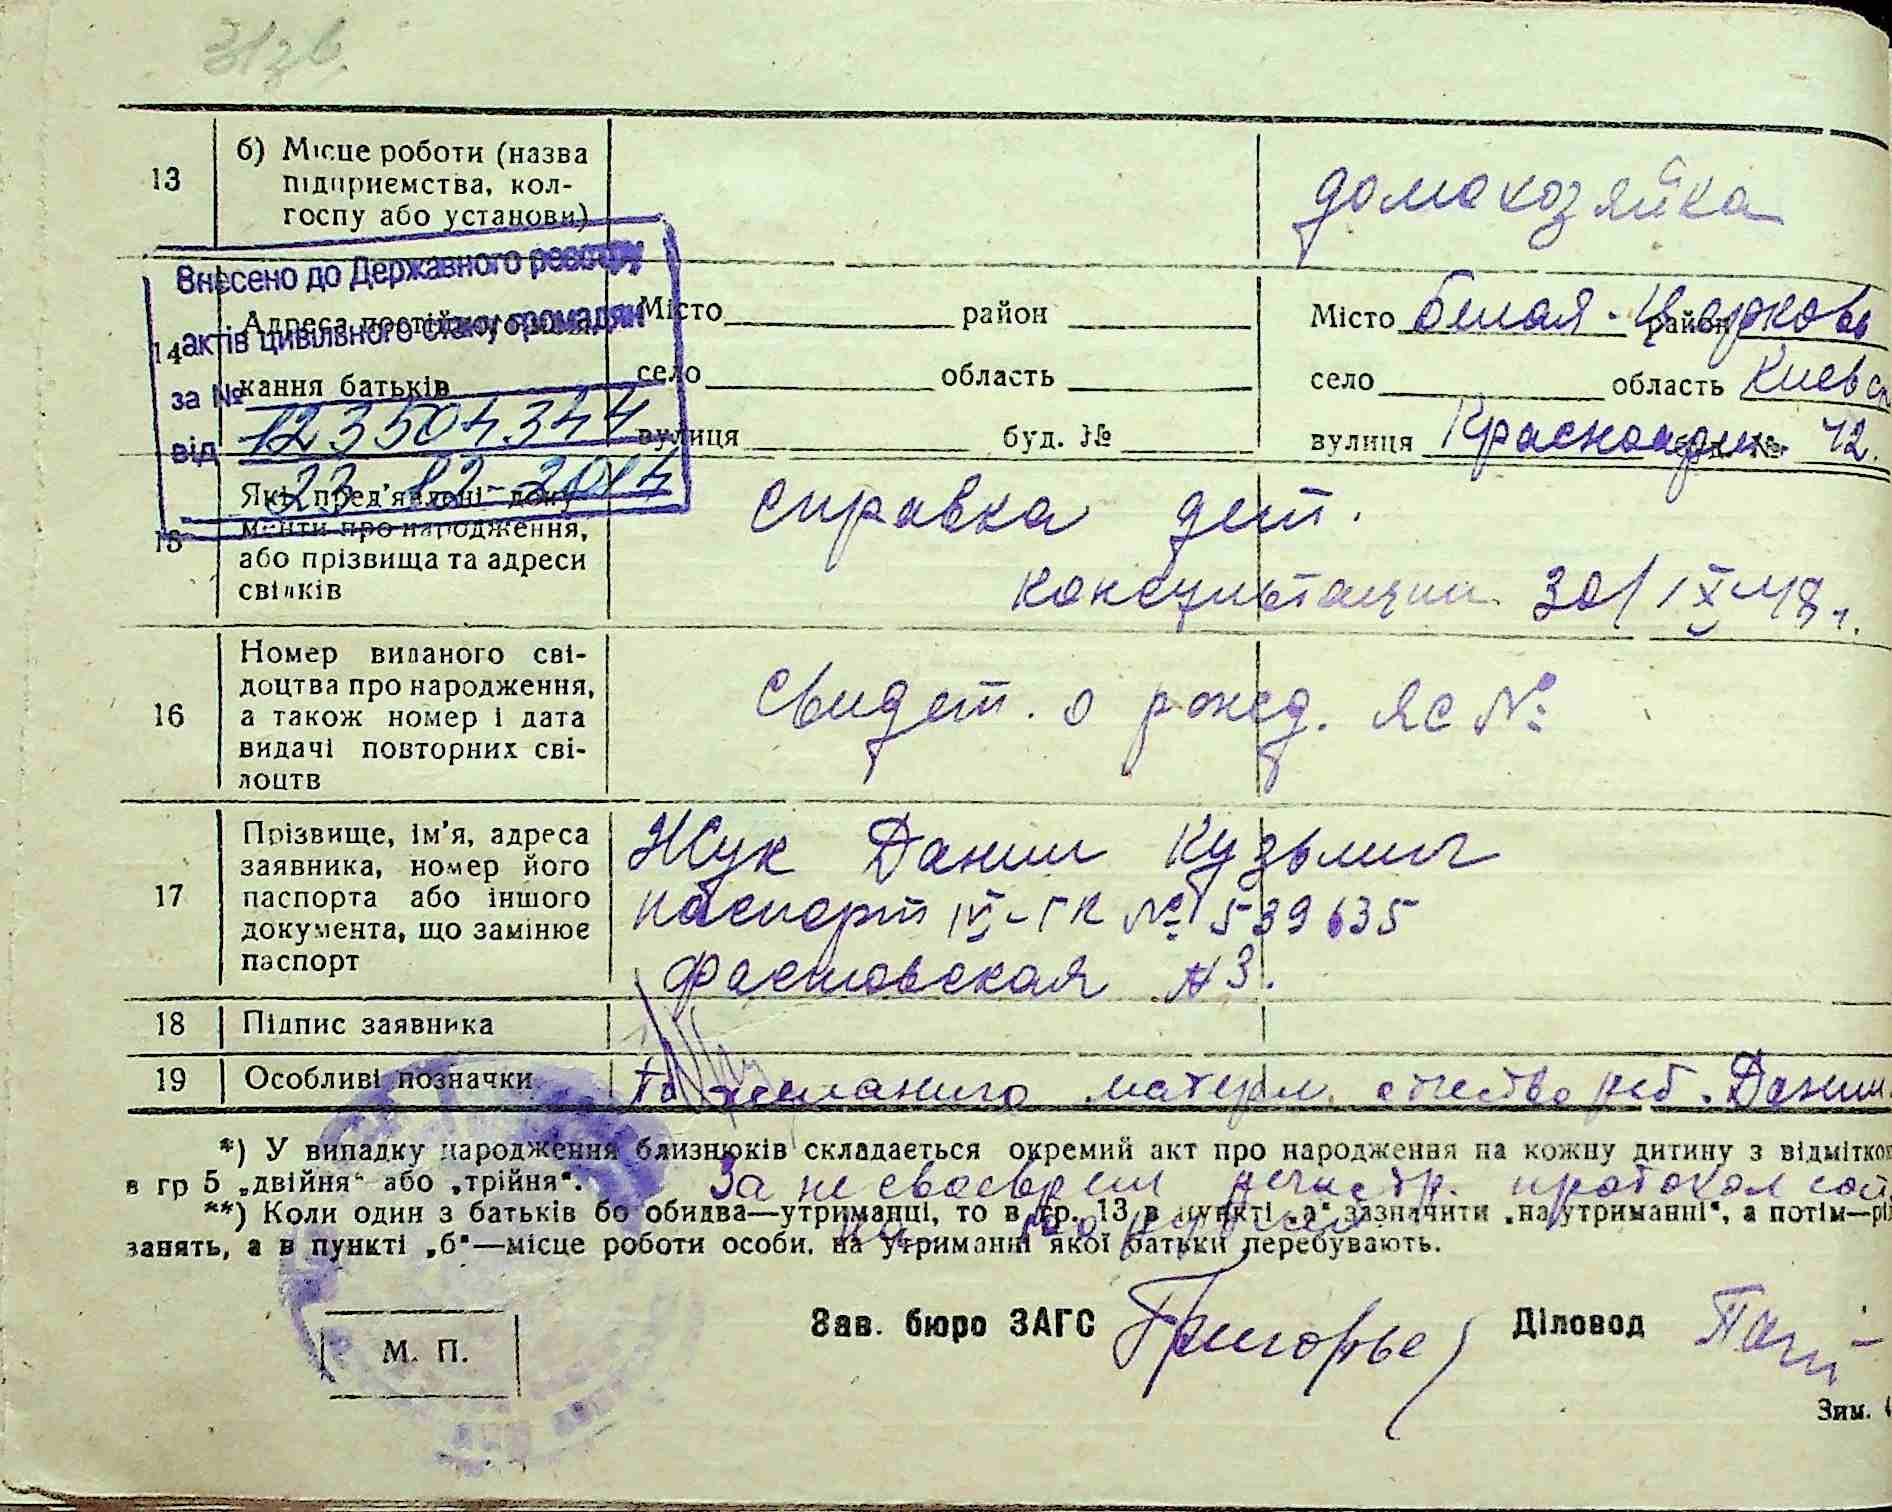 13
б) Місце роботи (назва
підприємства, кол-
госпу або установи)
домохозяйка
Внесено до Державного реєстру
актів цивільного стану громадян
за №
123504344
від
23 12-2014
14
Адреса постійного
кання батьків
Місто район
село область
вулиця буд. №
Місто Белая-Церковь район
село область Киевск
вулиця Красноарм. буд. № 42.
15
Які пред'явлені доку-
менти про народження,
або прізвища та адреси
свідків
справка дет.
консультации 30/IX-48 г.
16
Номер виданого сві-
доцтва про народження,
а також номер і дата
видачі повторних сві-
доцтв
Свидет. о рожд. ЯС №
17
Прізвище, ім'я, адреса
заявника, номер його
паспорта або іншого
документа, що замінює
паспорт
Жук Данил Кузьмич
паспорт IV-ГК № 539635
Фастовская № 3.
18
Підпис заявника
19
Особливі позначки
По желанию матери отчество реб. Данил
*) У випадку народження близнюків складається окремий акт про народження на кожну дитину з відміткою
в гр 5 „двійня“ або „трійня“.
За несвоеврем регистр. протокол
**) Коли один з батьків бо обидва—утриманці, то в гр. 13 в пункті „а“ зазначити „на утриманні“, а потім—рі
занять, а в пункті „б“—місце роботи особи, на утриманні якої батьки перебувають.
М. П.
Зав. бюро ЗАГС
Діловод
Зим.